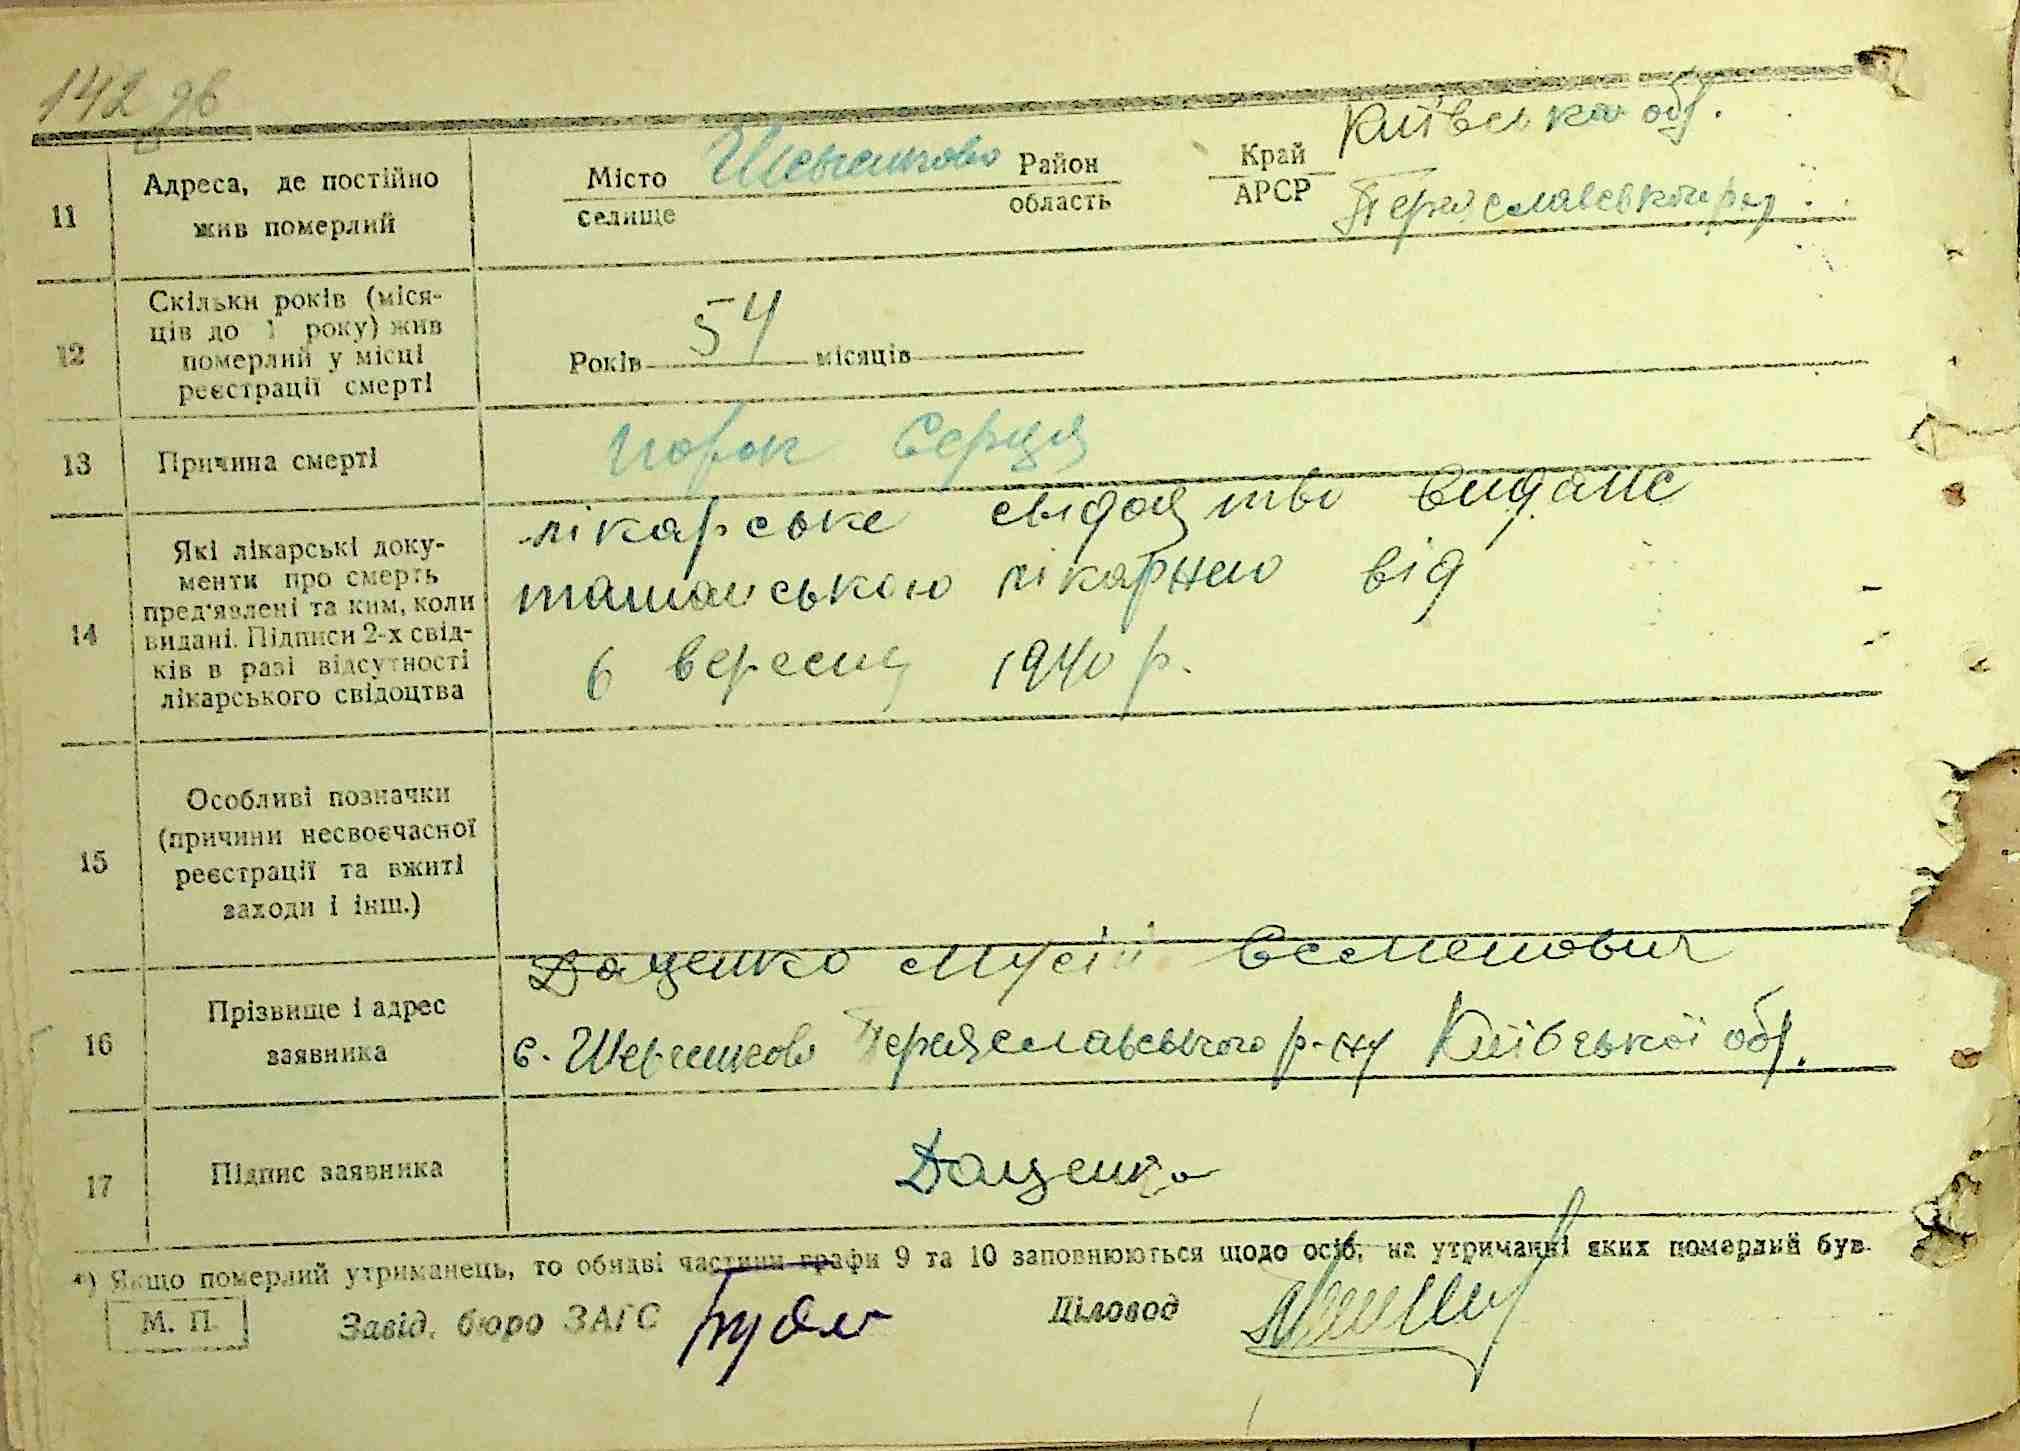 142 зв
11 Адреса, де постійно жив померлий
Місто селище Район область
Край АРСР Київська обл.
Переяславський р-н
12 Скільки років (міся-
ців до 1 року) жив
померлий у місці
реєстрації смерті
Років 54 місяців
13 Причина смерті
Порок Серця
14 Які лікарські доку-
менти про смерть
пред'явлені та ким, коли
видані. Підписи 2-х свід-
ків в разі відсутності
лікарського свідоцтва
лікарське свідоцтво видане
ташанською лікарнею від
6 вересня 1940 р.
15 Особливі позначки
(причини несвоєчасної
реєстрації та вжиті
заходи і інш.)
16 Прізвище і адрес
заявника
Даценко Мусій Семенович
с. Переяславського р-ну Київської обл.
17 Підпис заявника
Даценко
*) Якщо померлий утриманець, то обидві частини графи 9 та 10 заповнюються щодо осіб, на утриманні яких померлий був.
М. П. Завід. бюро ЗАГС Діловод